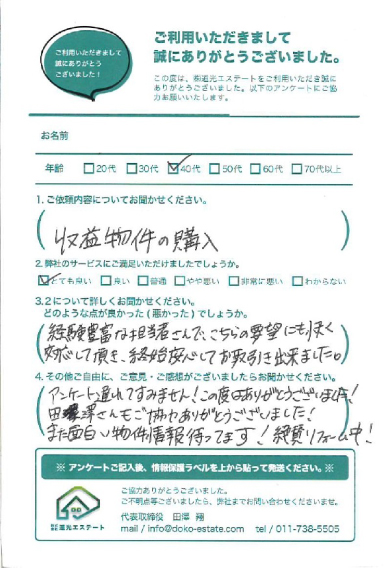 ご利用いただきまして
誠にありがとう
ございました！
ご利用いただきまして
誠にありがとうございました。
この度は、㈱道光エステートをご利用いただき誠に
ありがとうございました。以下のアンケートにご協
力お願いいたします。
お名前
年齢 □20代 □30代 ☑40代 □50代 □60代 □70代以上
1.ご依頼内容についてお聞かせください。
収益物件の購入
2.弊社のサービスにご満足いただけましたでしょうか。
☑とても良い □良い □普通 □やや悪い □非常に悪い □わからない
3.2について詳しくお聞かせください。
どのような点が良かった(悪かった)でしょうか。
経験豊富な担当者さんで、こちらの要望にも快く
対応して頂き、終始安心してお取引き出来ました。
4.その他ご自由に、ご意見・ご感想がございましたらお聞かせください。
アンケート遅れてすみません！この度はありがとうございます！
田澤さんもご協力ありがとうございました！
また面白い物件情報待ってます！絶賛リフォーム中！
※ アンケートご記入後、情報保護ラベルを上から貼って発送ください。 ※
ご協力ありがとうございました。
ご不明点等ございましたら、弊社までお問い合わせくださいませ。
代表取締役 田澤 翔
mail / info@doko-estate.com tel / 011-738-5505
株式会社道光エステート